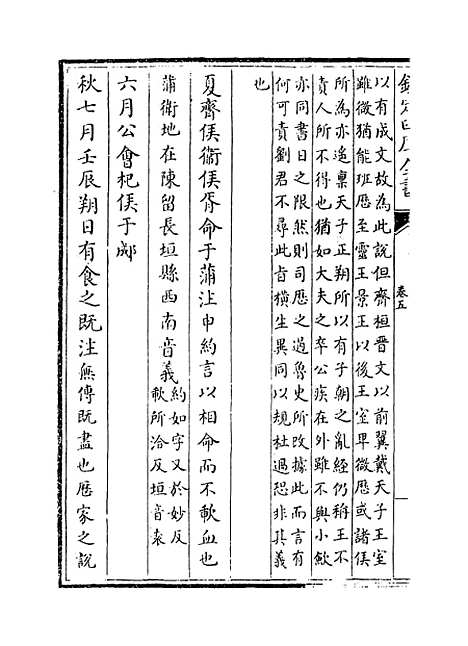 欽定四庫全書
卷五
以有成文故為此說但齊桓晋文以前翼戴天子王室
雖微猶能班厯至靈王景王以後王室卑微厯或諸侯
所為亦遙稟天子正朔所以有子朝之亂經仍稱王不
責人所不得也猶如大夫之卒公疾在外雖不與小歛
亦同書日之限然則司厯之過魯史所改據此而言有
何可責劉君不尋此旨横生異同以規杜過恐非其義
也
夏齊侯衛侯胥命于蒲注申約言以相命而不歃血也
蒲衛地在陳留長垣縣西南音義約如字又於妙反
歃所洽反垣音袁
六月公會杞侯于郕
秋七月壬辰朔日有食之既注無傳既盡也厯家之說